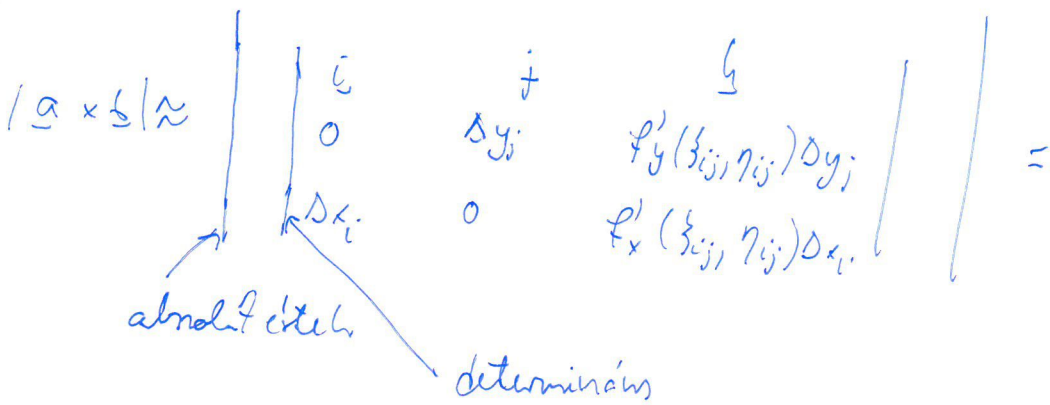 i j k
|a × b| ≈ || 0 Δyj f'y(ξij, ηij)Δyj || =
Δxi 0 f'x(ξij, ηij)Δxi
abszolút érték
determináns